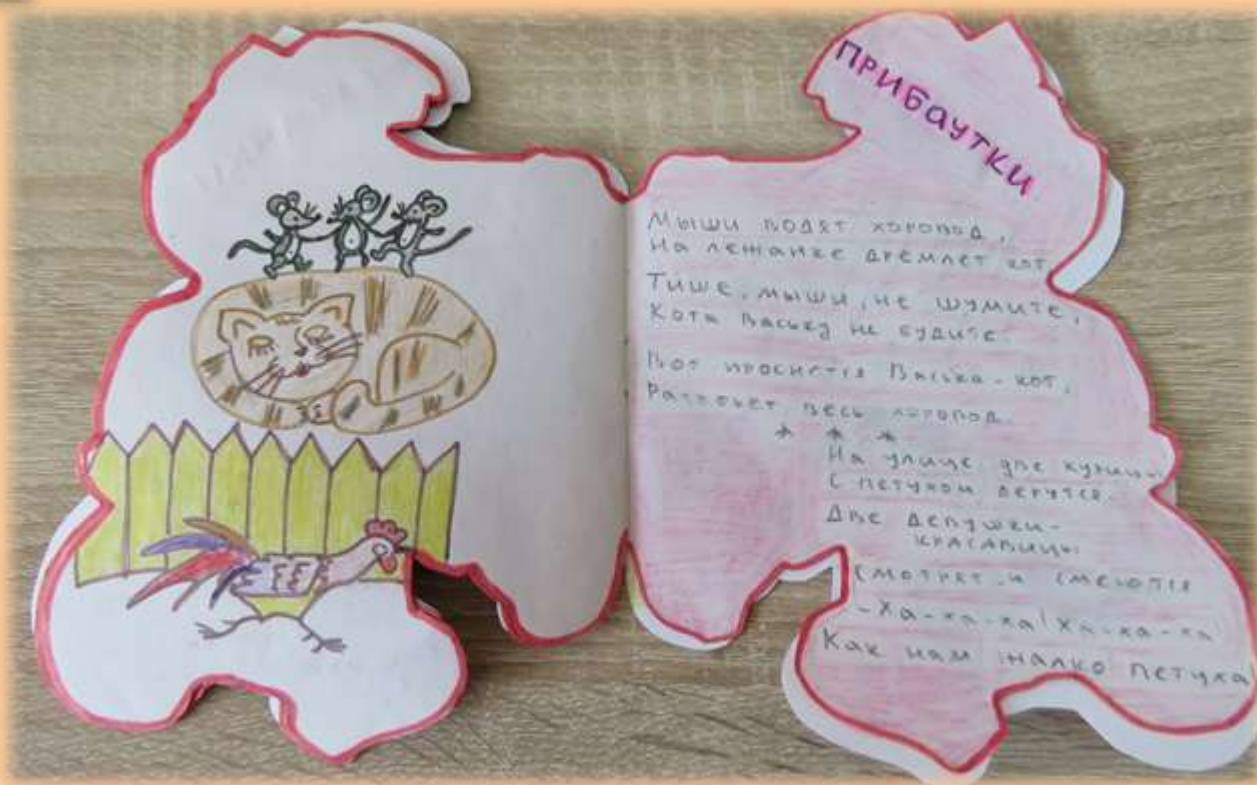 ПРИБАУТКИ
Мыши водят хоровод,
На лежанке дремлет кот
Тише, мыши, не шумите,
Кота Ваську не будите.
Вот проснется Васька-кот,
Разобьет весь хоровод.
* * *
На улице две курицы
С петухом дерутся.
Две девушки-
красавицы
Смотрят и смеются
-Ха-ха-ха! Ха-ха-ха
Как нам жалко петуха